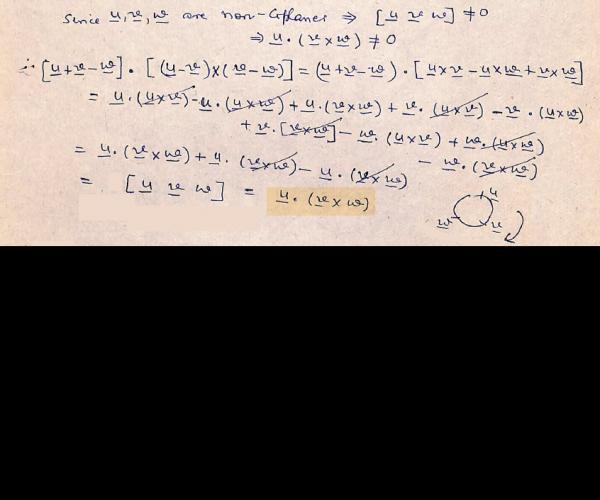 Since u, v, w are non-Coplaner ⇒ [u v w] ≠ 0
⇒ u · (v × w) ≠ 0
∴ [u+v-w] · [(u-v)×(v-w)] = (u+v-w) · [u×v - u×w + v×w]
= u·(u×v) - u·(u×w) + u·(v×w) + v·(u×v) - v·(u×w)
+ v·[v×w] - w·(u×v) + w·(u×w)
- w·(v×w)
= u·(v×w) + u·(v×w) - u·(v×w)
= [u v w] = u·(v×w)
u
w v